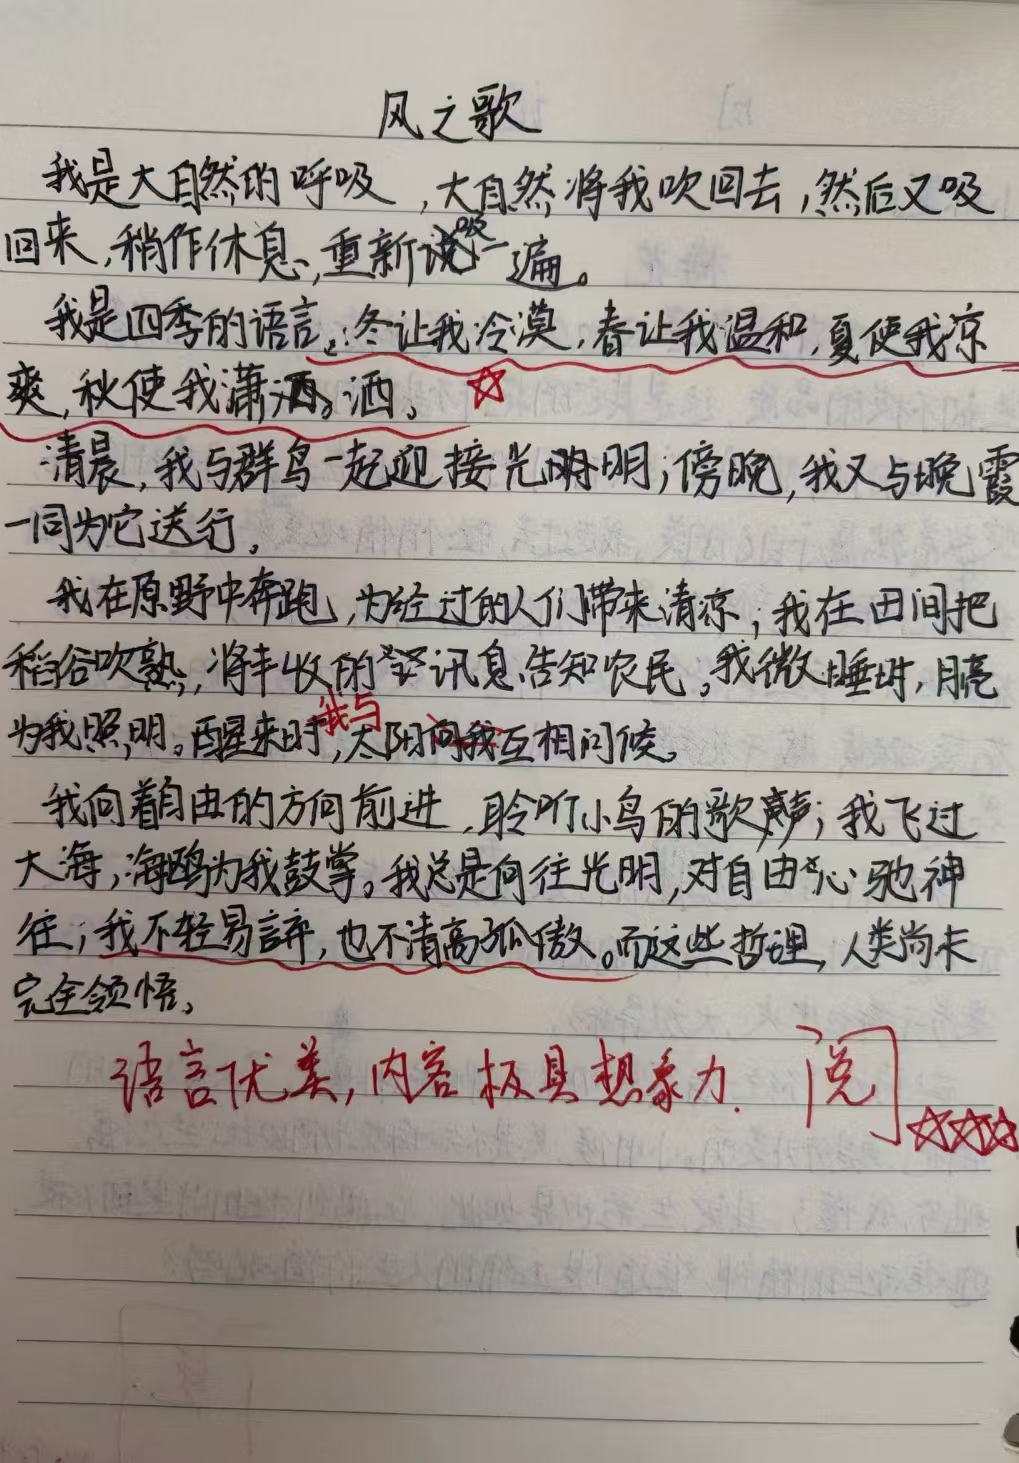 风之歌
我是大自然的呼吸，大自然将我吹回去，然后又吸
吸
回来，稍作休息，重新说一遍。
我是四季的语言，冬让我冷漠，春让我温和，夏使我凉
爽，秋使我潇洒。洒。
清晨，我与群鸟一起迎接光明；傍晚，我又与晚霞
一同为它送行。
我在原野中奔跑，为经过的人们带来清凉；我在田间把
稻谷吹熟，将丰收的讯息告知农民。我微睡时，月亮
我与
为我照明。醒来时，太阳向我互相问候。
我向着自由的方向前进，聆听小鸟的歌声；我飞过
大海，海鸥为我鼓掌。我总是向往光明，对自由心驰神
往；我不轻易言弃，也不清高孤傲。而这些哲理，人类尚未
完全领悟。
语言优美，内容极具想象力. 阅